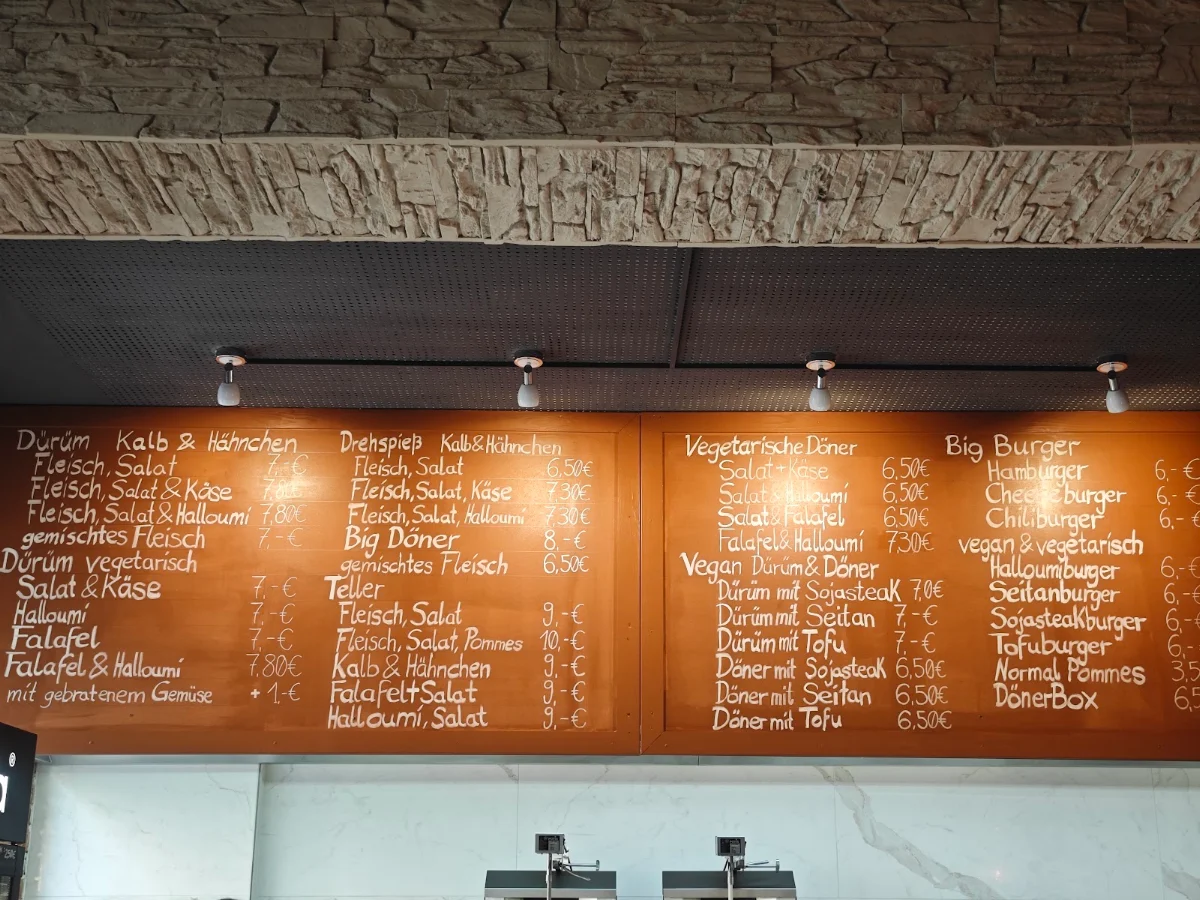 Dürüm Kalb & Hähnchen
Fleisch, Salat 7,-€
Fleisch, Salat & Käse 7,80€
Fleisch, Salat & Halloumi 7,80€
gemischtes Fleisch 7,-€
Dürüm vegetarisch
Salat & Käse 7,-€
Halloumi 7,-€
Falafel 7,-€
Falafel & Halloumi 7,80€
mit gebratenem Gemüse +1,-€
Drehspieß Kalb & Hähnchen
Fleisch, Salat 6,50€
Fleisch, Salat, Käse 7,30€
Fleisch, Salat, Halloumi 7,30€
Big Döner 8,-€
gemischtes Fleisch 6,50€
Teller
Fleisch, Salat 9,-€
Fleisch, Salat, Pommes 10,-€
Kalb & Hähnchen 9,-€
Falafel+Salat 9,-€
Halloumi, Salat 9,-€
Vegetarische Döner
Salat+Käse 6,50€
Salat & Halloumi 6,50€
Salat & Falafel 6,50€
Falafel & Halloumi 7,30€
Vegan Dürüm & Döner
Dürüm mit Sojasteak 7,0€
Dürüm mit Seitan 7,-€
Dürüm mit Tofu 7,-€
Döner mit Sojasteak 6,50€
Döner mit Seitan 6,50€
Döner mit Tofu 6,50€
Big Burger
Hamburger 6,-€
Cheeseburger 6,-€
Chiliburger 6,-€
vegan & vegetarisch
Halloumiburger 6,-€
Seitanburger 6,-€
Sojasteakburger 6,-
Tofuburger 6,-
Normal Pommes 3,5
DönerBox 6,5